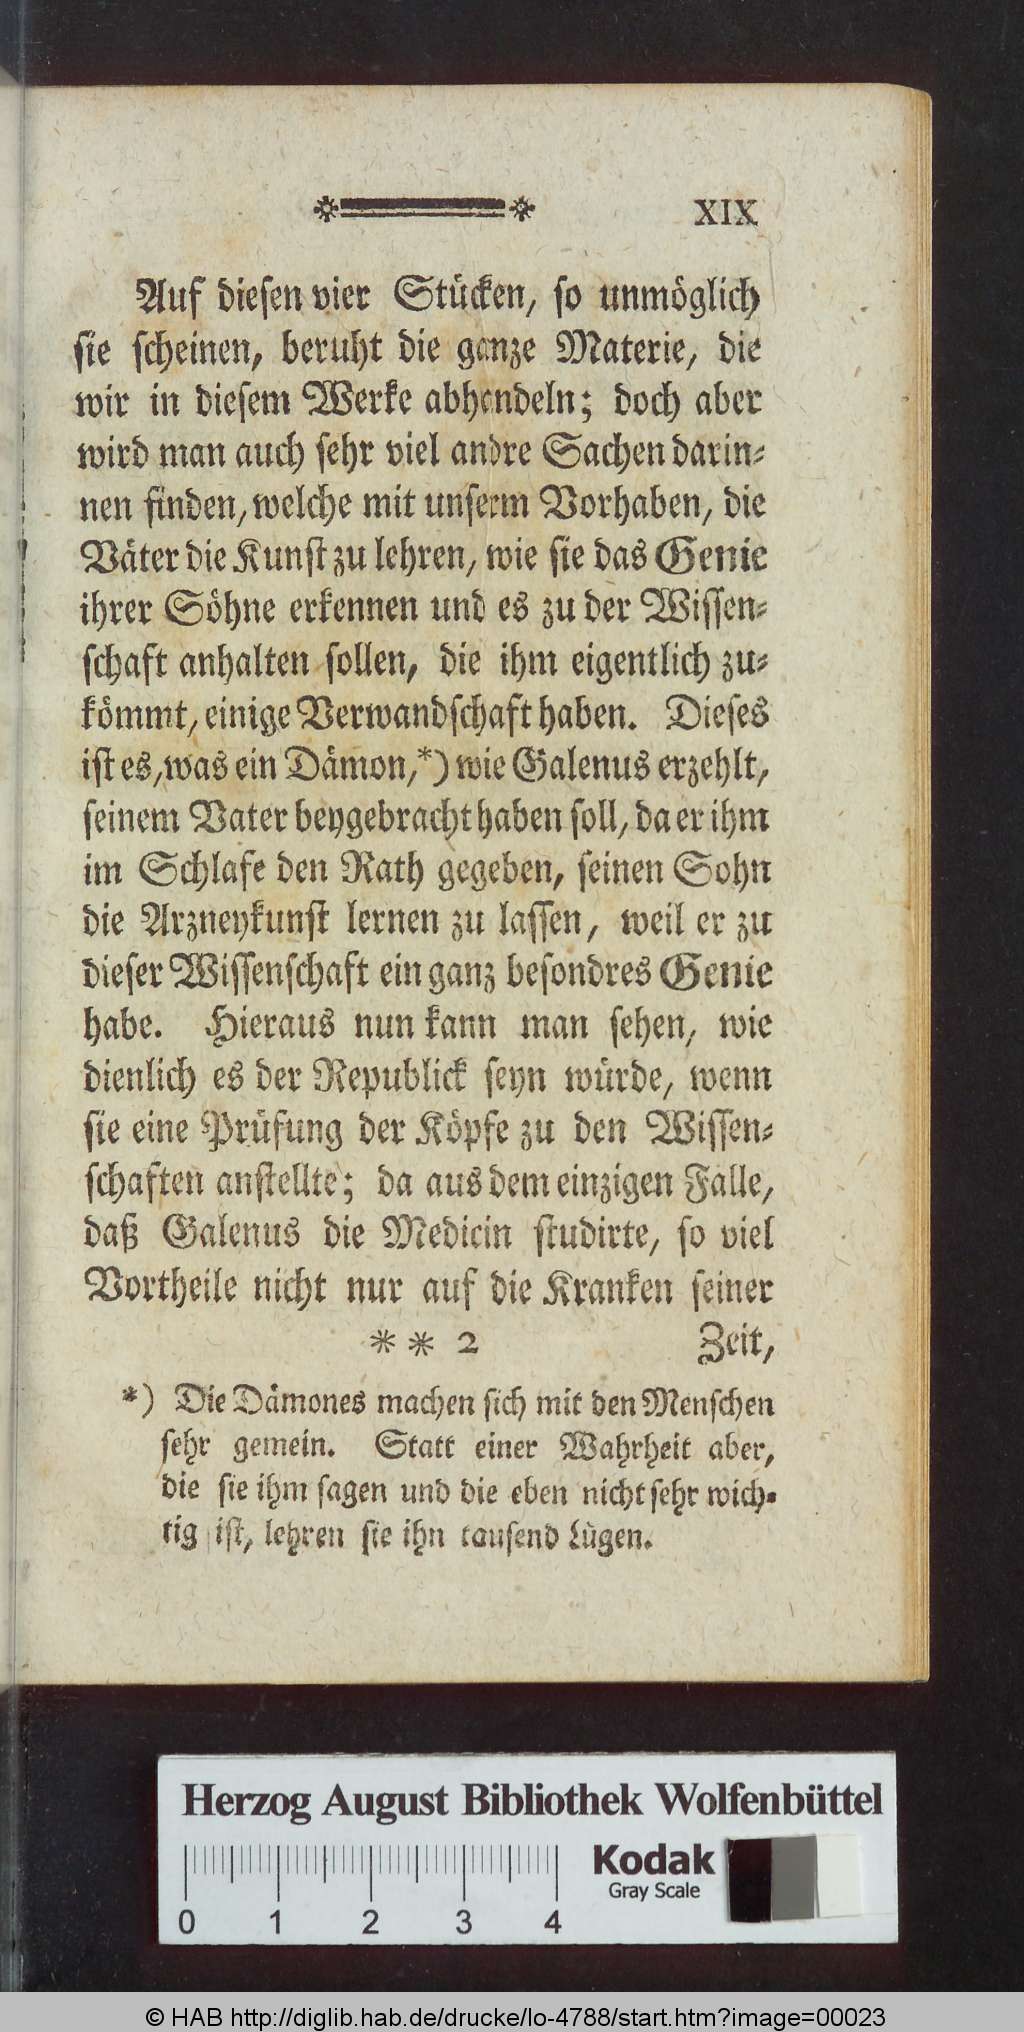 XIX
Auf diesen vier Stücken, so unmöglich
sie scheinen, beruht die ganze Materie, die
wir in diesem Werke abhandeln; doch aber
wird man auch sehr viel andre Sachen darin-
nen finden, welche mit unserm Vorhaben, die
Väter die Kunst zu lehren, wie sie das Genie
ihrer Söhne erkennen und es zu der Wissen-
schaft anhalten sollen, die ihm eigentlich zu-
kömmt, einige Verwandschaft haben. Dieses
ist es, was ein Dämon,*) wie Galenus erzehlt,
seinem Vater beygebracht haben soll, da er ihm
im Schlafe den Rath gegeben, seinen Sohn
die Arzneykunst lernen zu lassen, weil er zu
dieser Wissenschaft ein ganz besondres Genie
habe. Hieraus nun kann man sehen, wie
dienlich es der Republick seyn würde, wenn
sie eine Prüfung der Köpfe zu den Wissen-
schaften anstellte; da aus dem einzigen Falle,
daß Galenus die Medicin studirte, so viel
Vortheile nicht nur auf die Kranken seiner
* * 2 Zeit,
*) Die Dämones machen sich mit den Menschen
sehr gemein. Statt einer Wahrheit aber,
die sie ihm sagen und die eben nicht sehr wich-
tig ist, lehren sie ihn tausend Lügen.
Herzog August Bibliothek Wolfenbüttel
Kodak
Gray Scale
0 1 2 3 4
© HAB http://diglib.hab.de/drucke/lo-4788/start.htm?image=00023